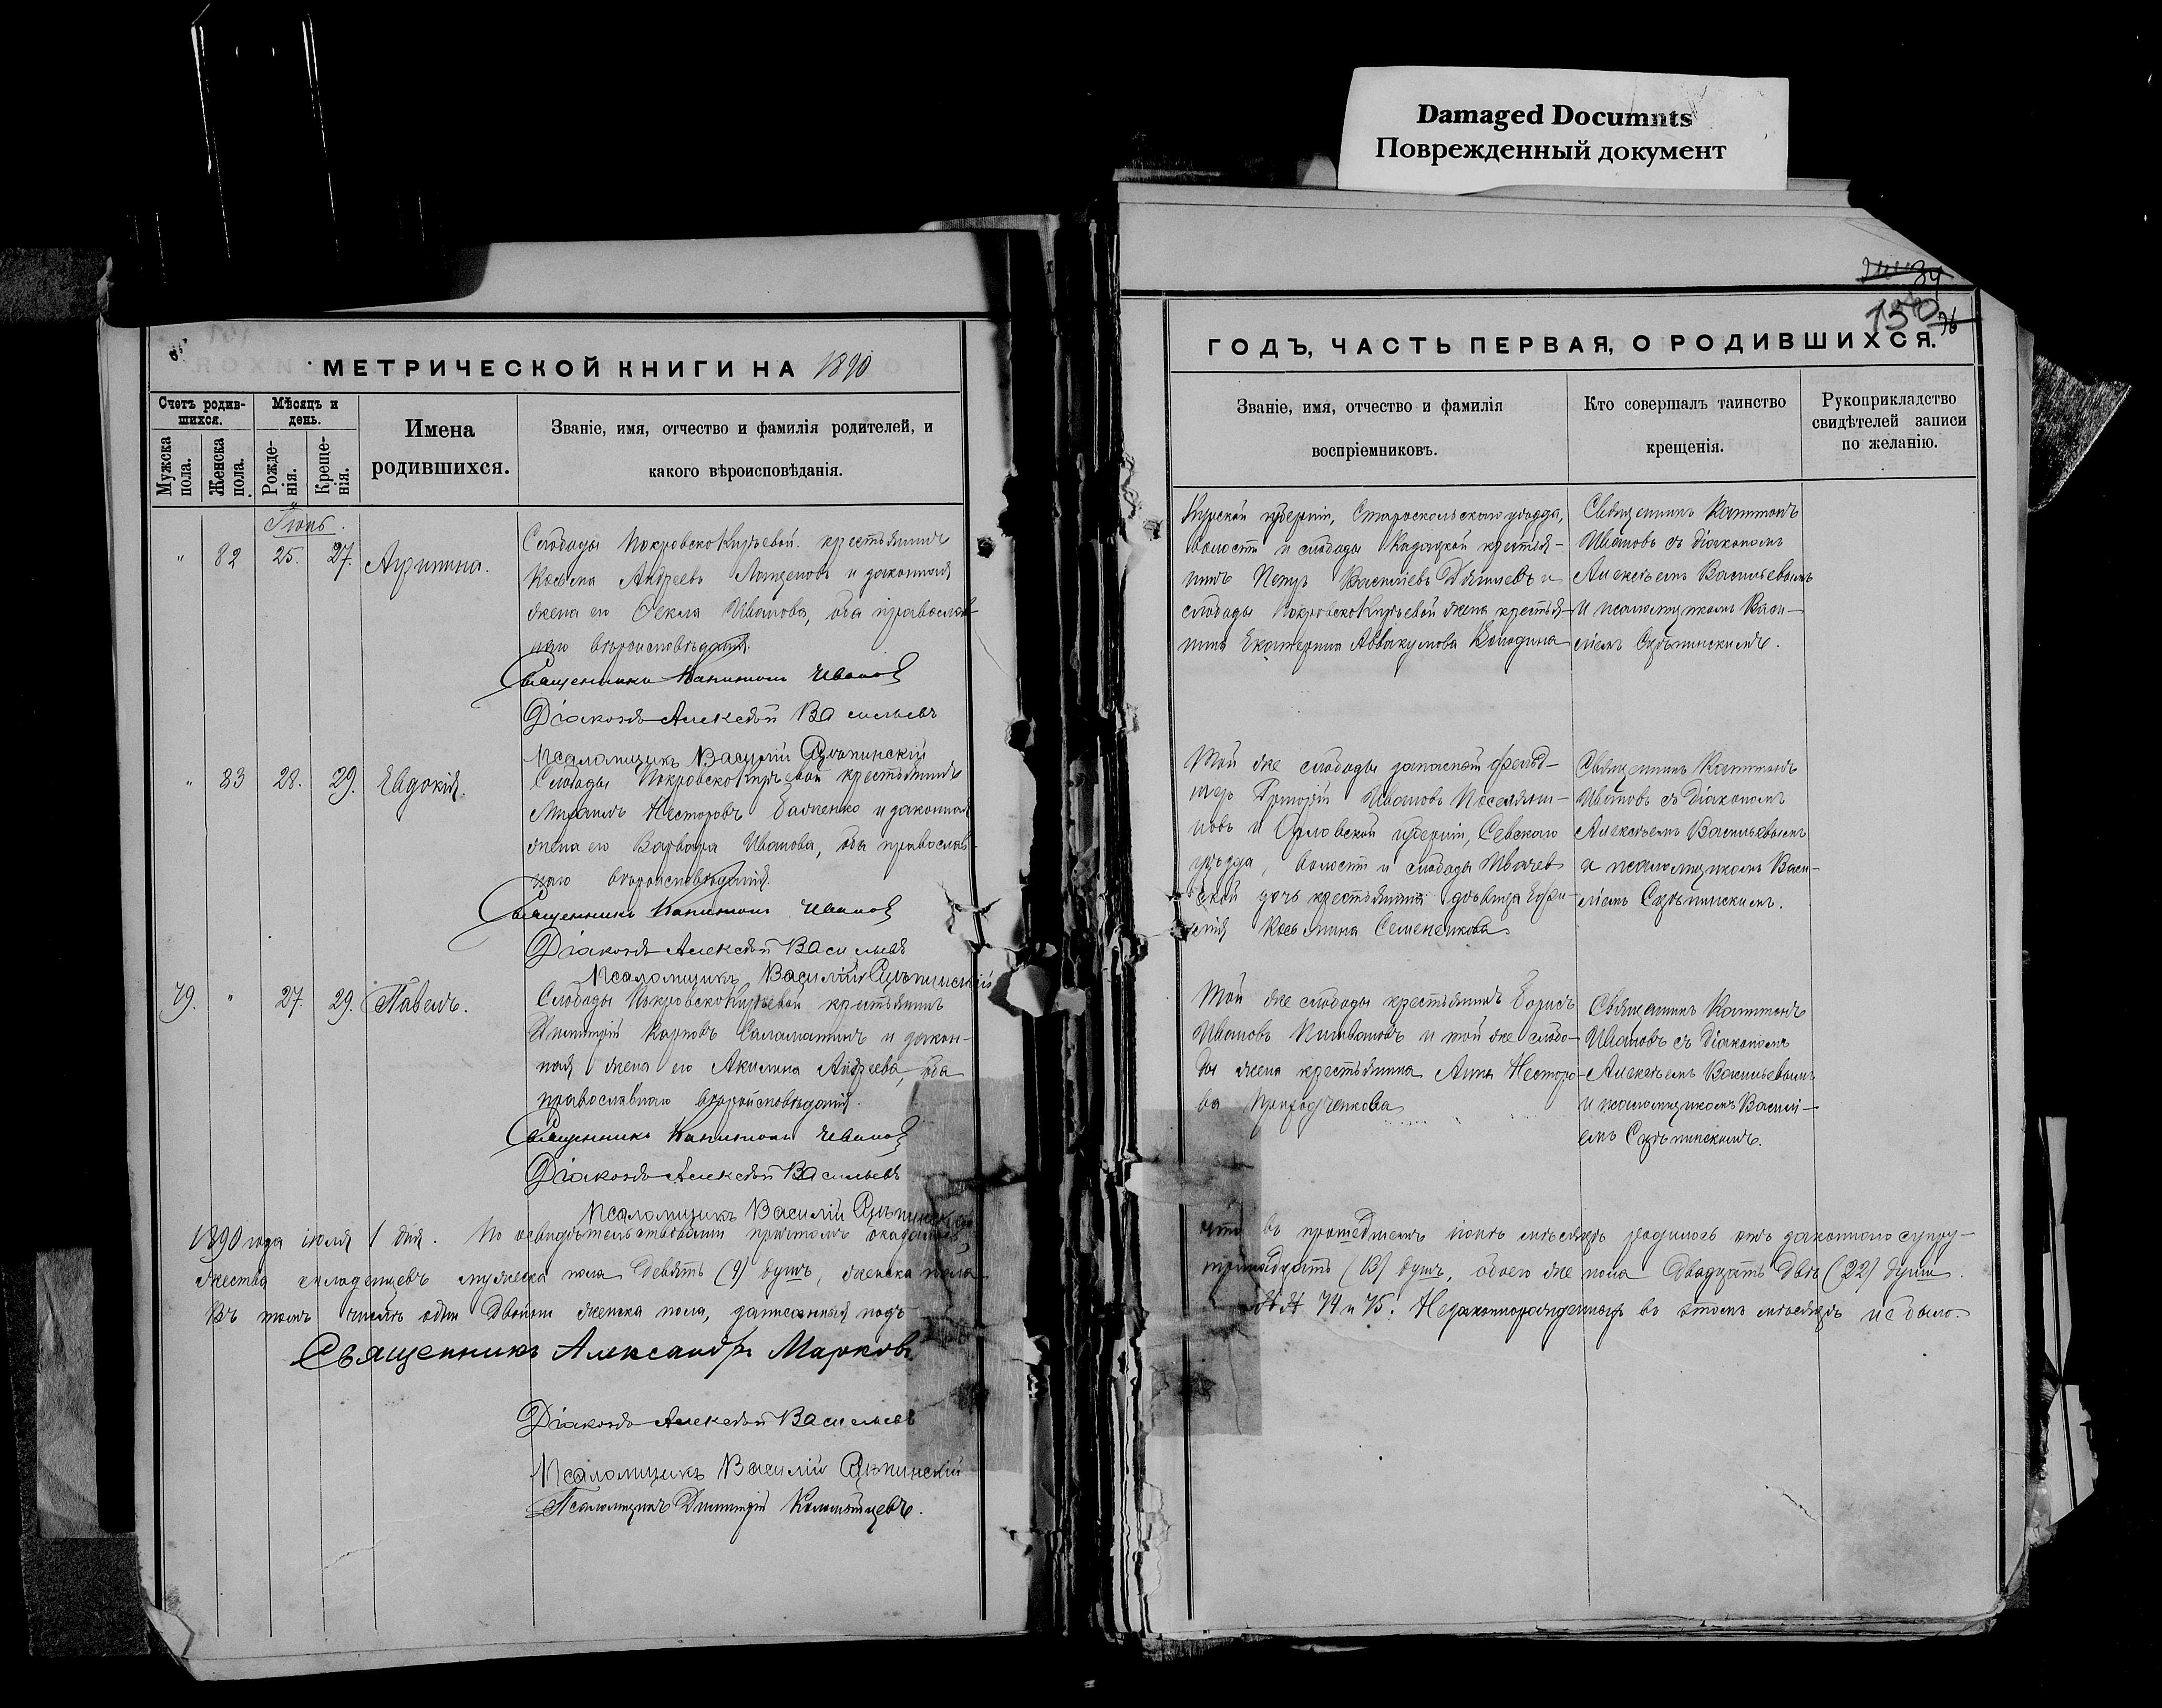 Damaged Documnts
Поврежденный документ
150
МЕТРИЧЕСКОЙ КНИГИ НА 1890
Счетъ родив-
шихся.
Мѣсяцъ и
день.
Мужска
пола.
Женска
пола.
Рожде-
нія.
Креще-
нія.
Имена
родившихся.
Званіе, имя, отчество и фамилія родителей, и
какого вѣроисповѣданія.
Іюнь.
" 82 25. 27. Агрипина.
Слободы ПокровскоКиръевой крестьянинъ
Косьма Андреевъ и законная
жена его Ѳекла Иванова, оба православ-
наго вѣроисповѣданія.
Священникъ Капитонъ Ивановъ
Діаконъ Алексѣй Васильевъ
Псаломщикъ Василій
" 83 28. 29. Евдокія.
Слободы крестьянинъ
Михаилъ Несторовъ и законная
жена его Варвара Иванова, оба православ-
наго вѣроисповѣданія.
Священникъ Капитонъ Ивановъ
Діаконъ Алексѣй Васильевъ
Псаломщикъ Василій
79. " 27. 29. Павелъ.
Слободы крестьянинъ
Димитрій Карповъ Саламатинъ и закон-
ная жена его Акилина Андреева, оба
православнаго вѣроисповѣданія.
Священникъ Капитонъ Ивановъ
Діаконъ Алексѣй Васильевъ
Псаломщикъ Василій
1890 года іюля 1 дня. По освидѣтельствованіи причтомъ оказалось,
жества младенцевъ мужеска пола девять (9) душъ, женска пола
Въ томъ числѣ одни двойни женска пола, записанныя подъ
Священникъ Александръ Марковъ
Діаконъ Алексѣй Васильевъ
Псаломщикъ Василій
Псаломщикъ Димитрій
ГОДЪ, ЧАСТЬ ПЕРВАЯ, О РОДИВШИХСЯ.
Званіе, имя, отчество и фамилія
воспріемниковъ.
Кто совершалъ таинство
крещенія.
Рукоприкладство
свидѣтелей записи
по желанію.
Курской губерніи, Старооскольскаго уѣзда,
волости и слободы Казацкой крестья-
нинъ Петръ Васильевъ и
слободы жена крестья-
нина Екатерина Аввакумова Володина
Священникъ Капитонъ
Ивановъ съ діакономъ
Алексѣемъ Васильевымъ
и псаломщикомъ Васи-
ліемъ
Той же слободы запасный фельд-
шеръ Григорій Ивановъ
и Орловской губерніи, Севскаго
уѣзда, волости и слободы
дочь крестьянина дѣвица
Косьмина Семененкова
Священникъ Капитонъ
Ивановъ съ діакономъ
Алексѣемъ Васильевымъ
и псаломщикомъ Васи-
ліемъ
Той же слободы крестьянинъ Борисъ
Ивановъ и той же слобо-
ды жена крестьянина Анна Несторо-
ва
Священникъ Капитонъ
Ивановъ съ діакономъ
Алексѣемъ Васильевымъ
и псаломщикомъ Василі-
емъ
что въ прошедшемъ іюнѣ мѣсяцѣ родилось отъ законнаго супру-
тринадцать (13) душъ, обоего же пола двадцать двѣ (22) души.
№№ 74 и 75. Незаконнорожденныхъ въ этомъ мѣсяцѣ не было.